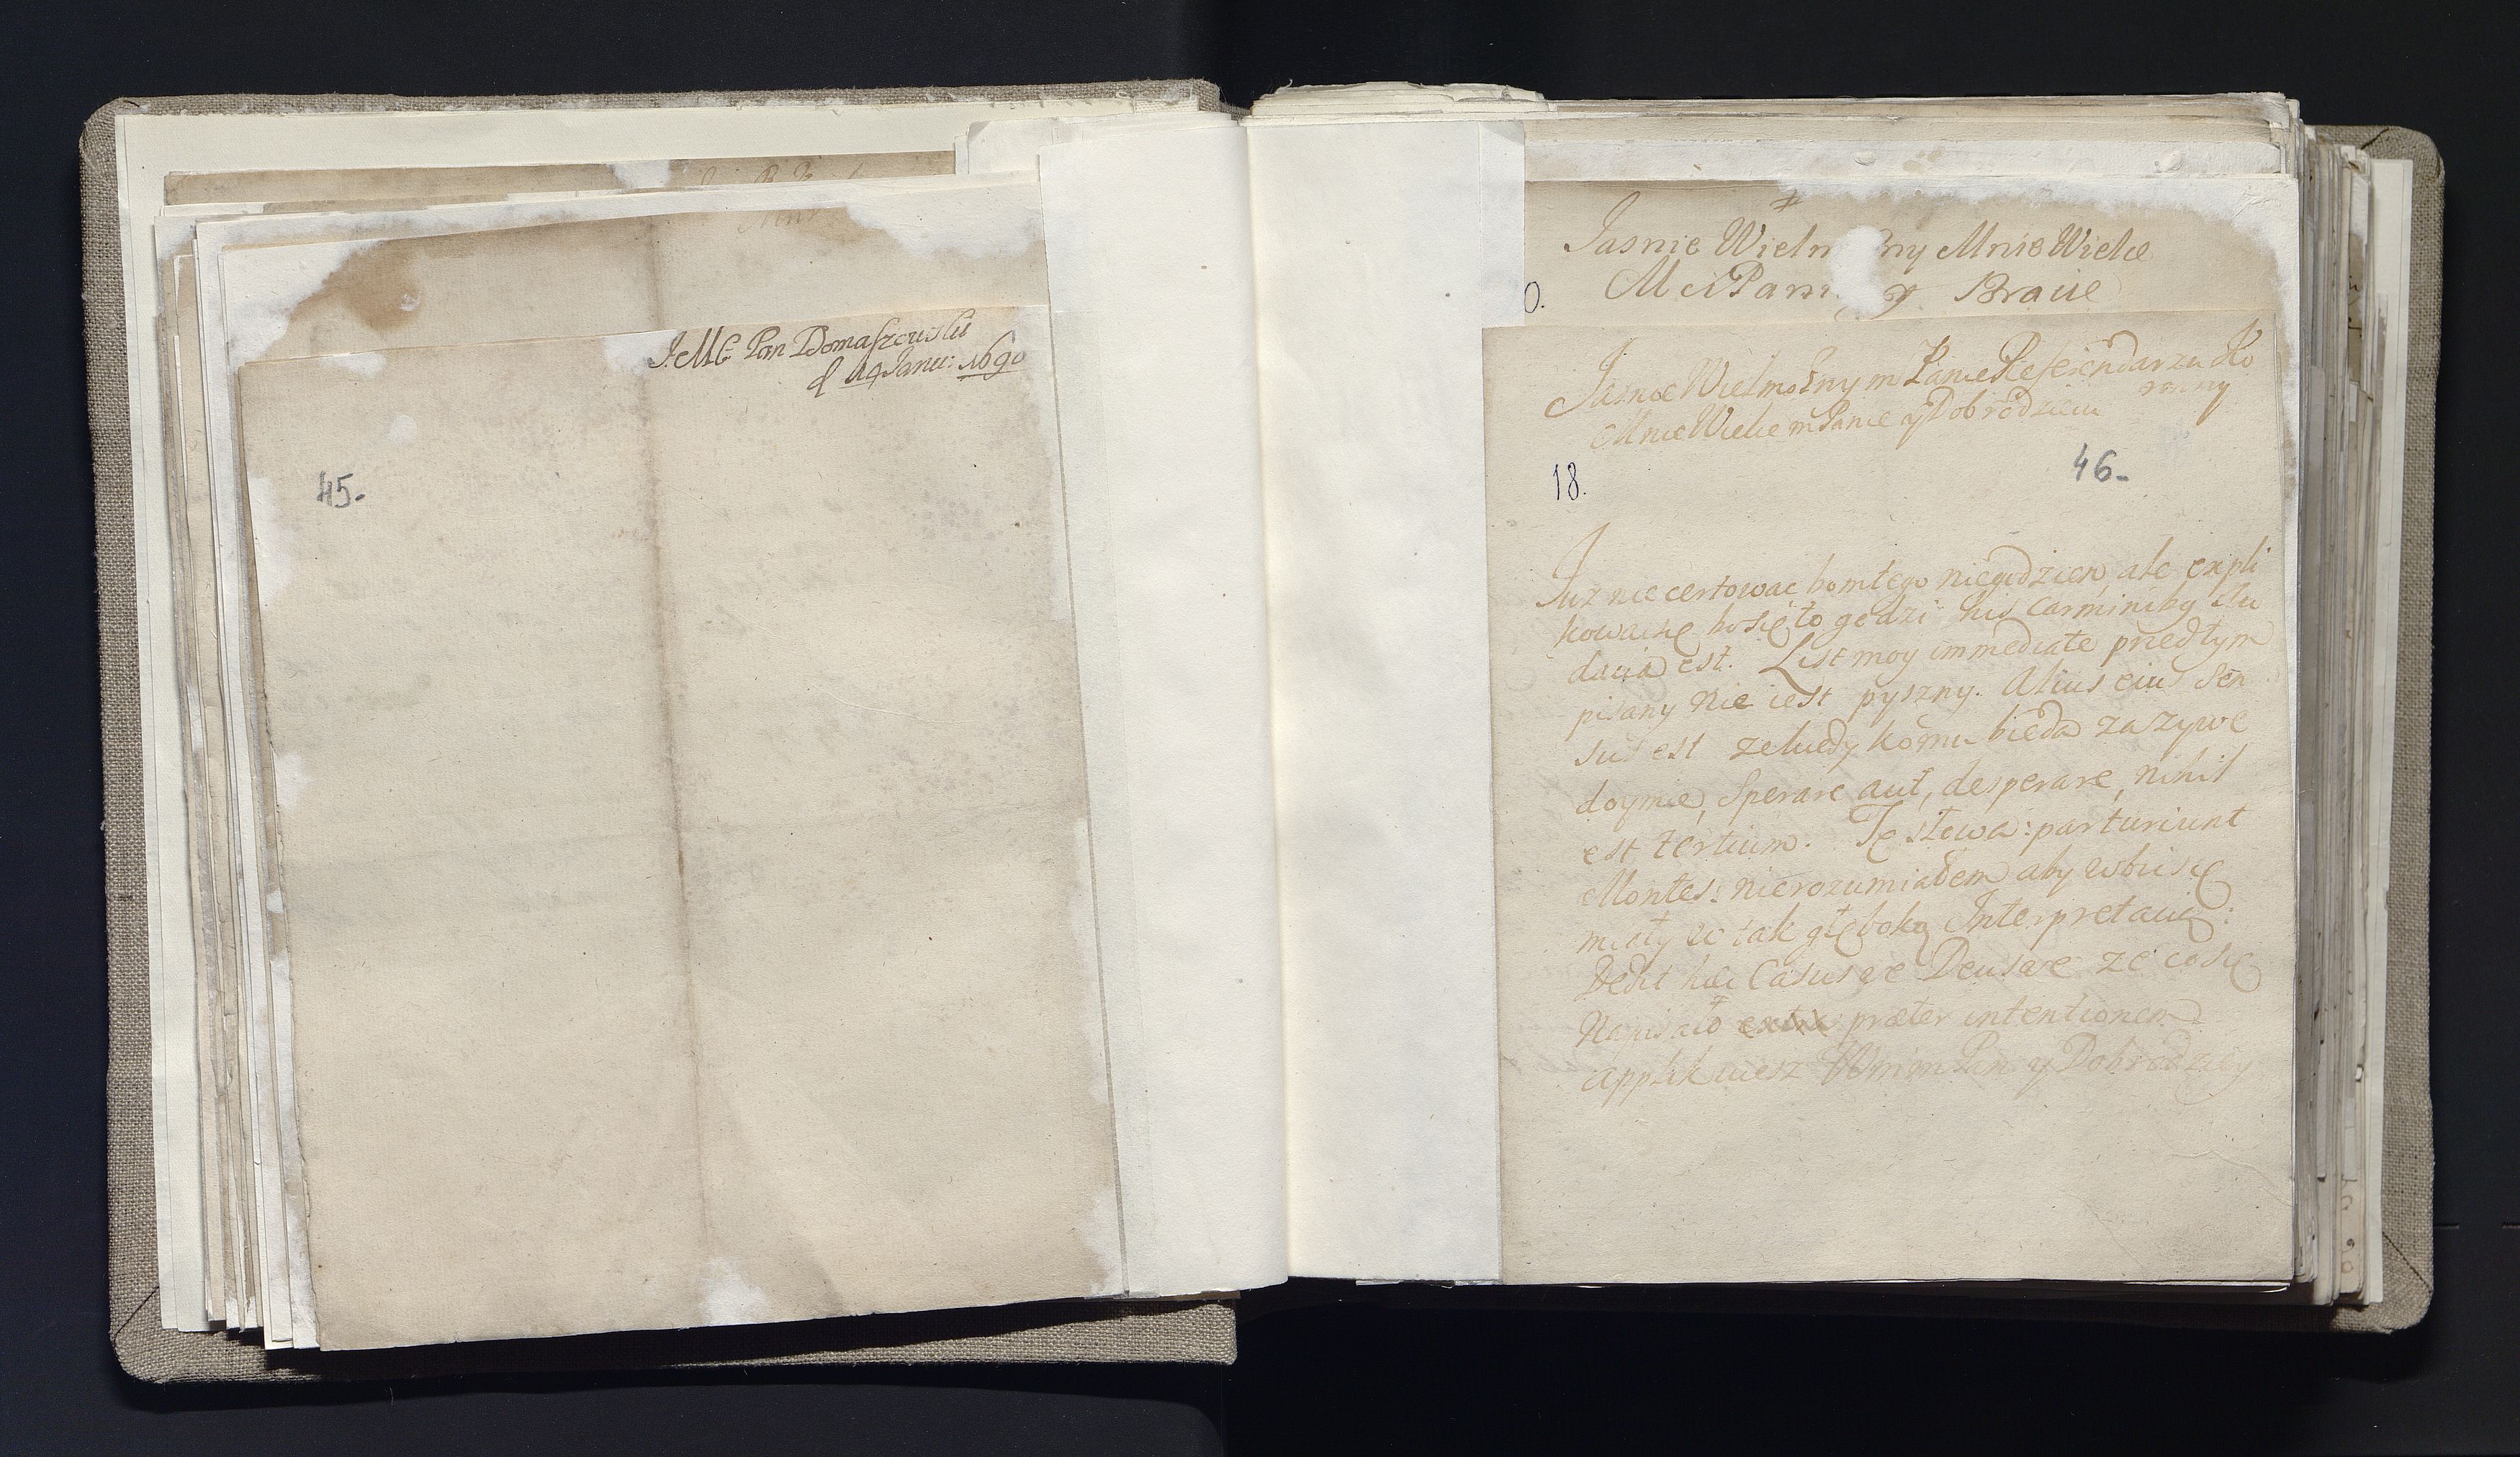 J.M.C. Pan Domaszewski
d 19 Janu: 1690
45.
Jasnie Wielm ny Mnie Wielce
M Ci Pan y Bracie
0.
Jasnie Wielmożny m Panie Referendarzu Ko
ronny
Mnie Wielce m Panie y Dobrodzieiu
18.
46.
Juz nie certowac bom tego niegodzien, ale expli
kowac się bo się to godzi his Carminibg
est. List moy immediate przed tym
pisany nie iest pyszny. Alius eius Sen
sus est ze kiedy komu bieda zazywe
doymie, Sperare aut, desperare, nihil
est tertium. Te słowa: parturiunt
Montes: nierozumiałem aby wbić się
miały w tak głęboką Interpretacią:
Dedit hæc Casusve Deusve ze co się
Napisało extra præter intentionem
applikuiesz Wm m Pan y Dobrodziey